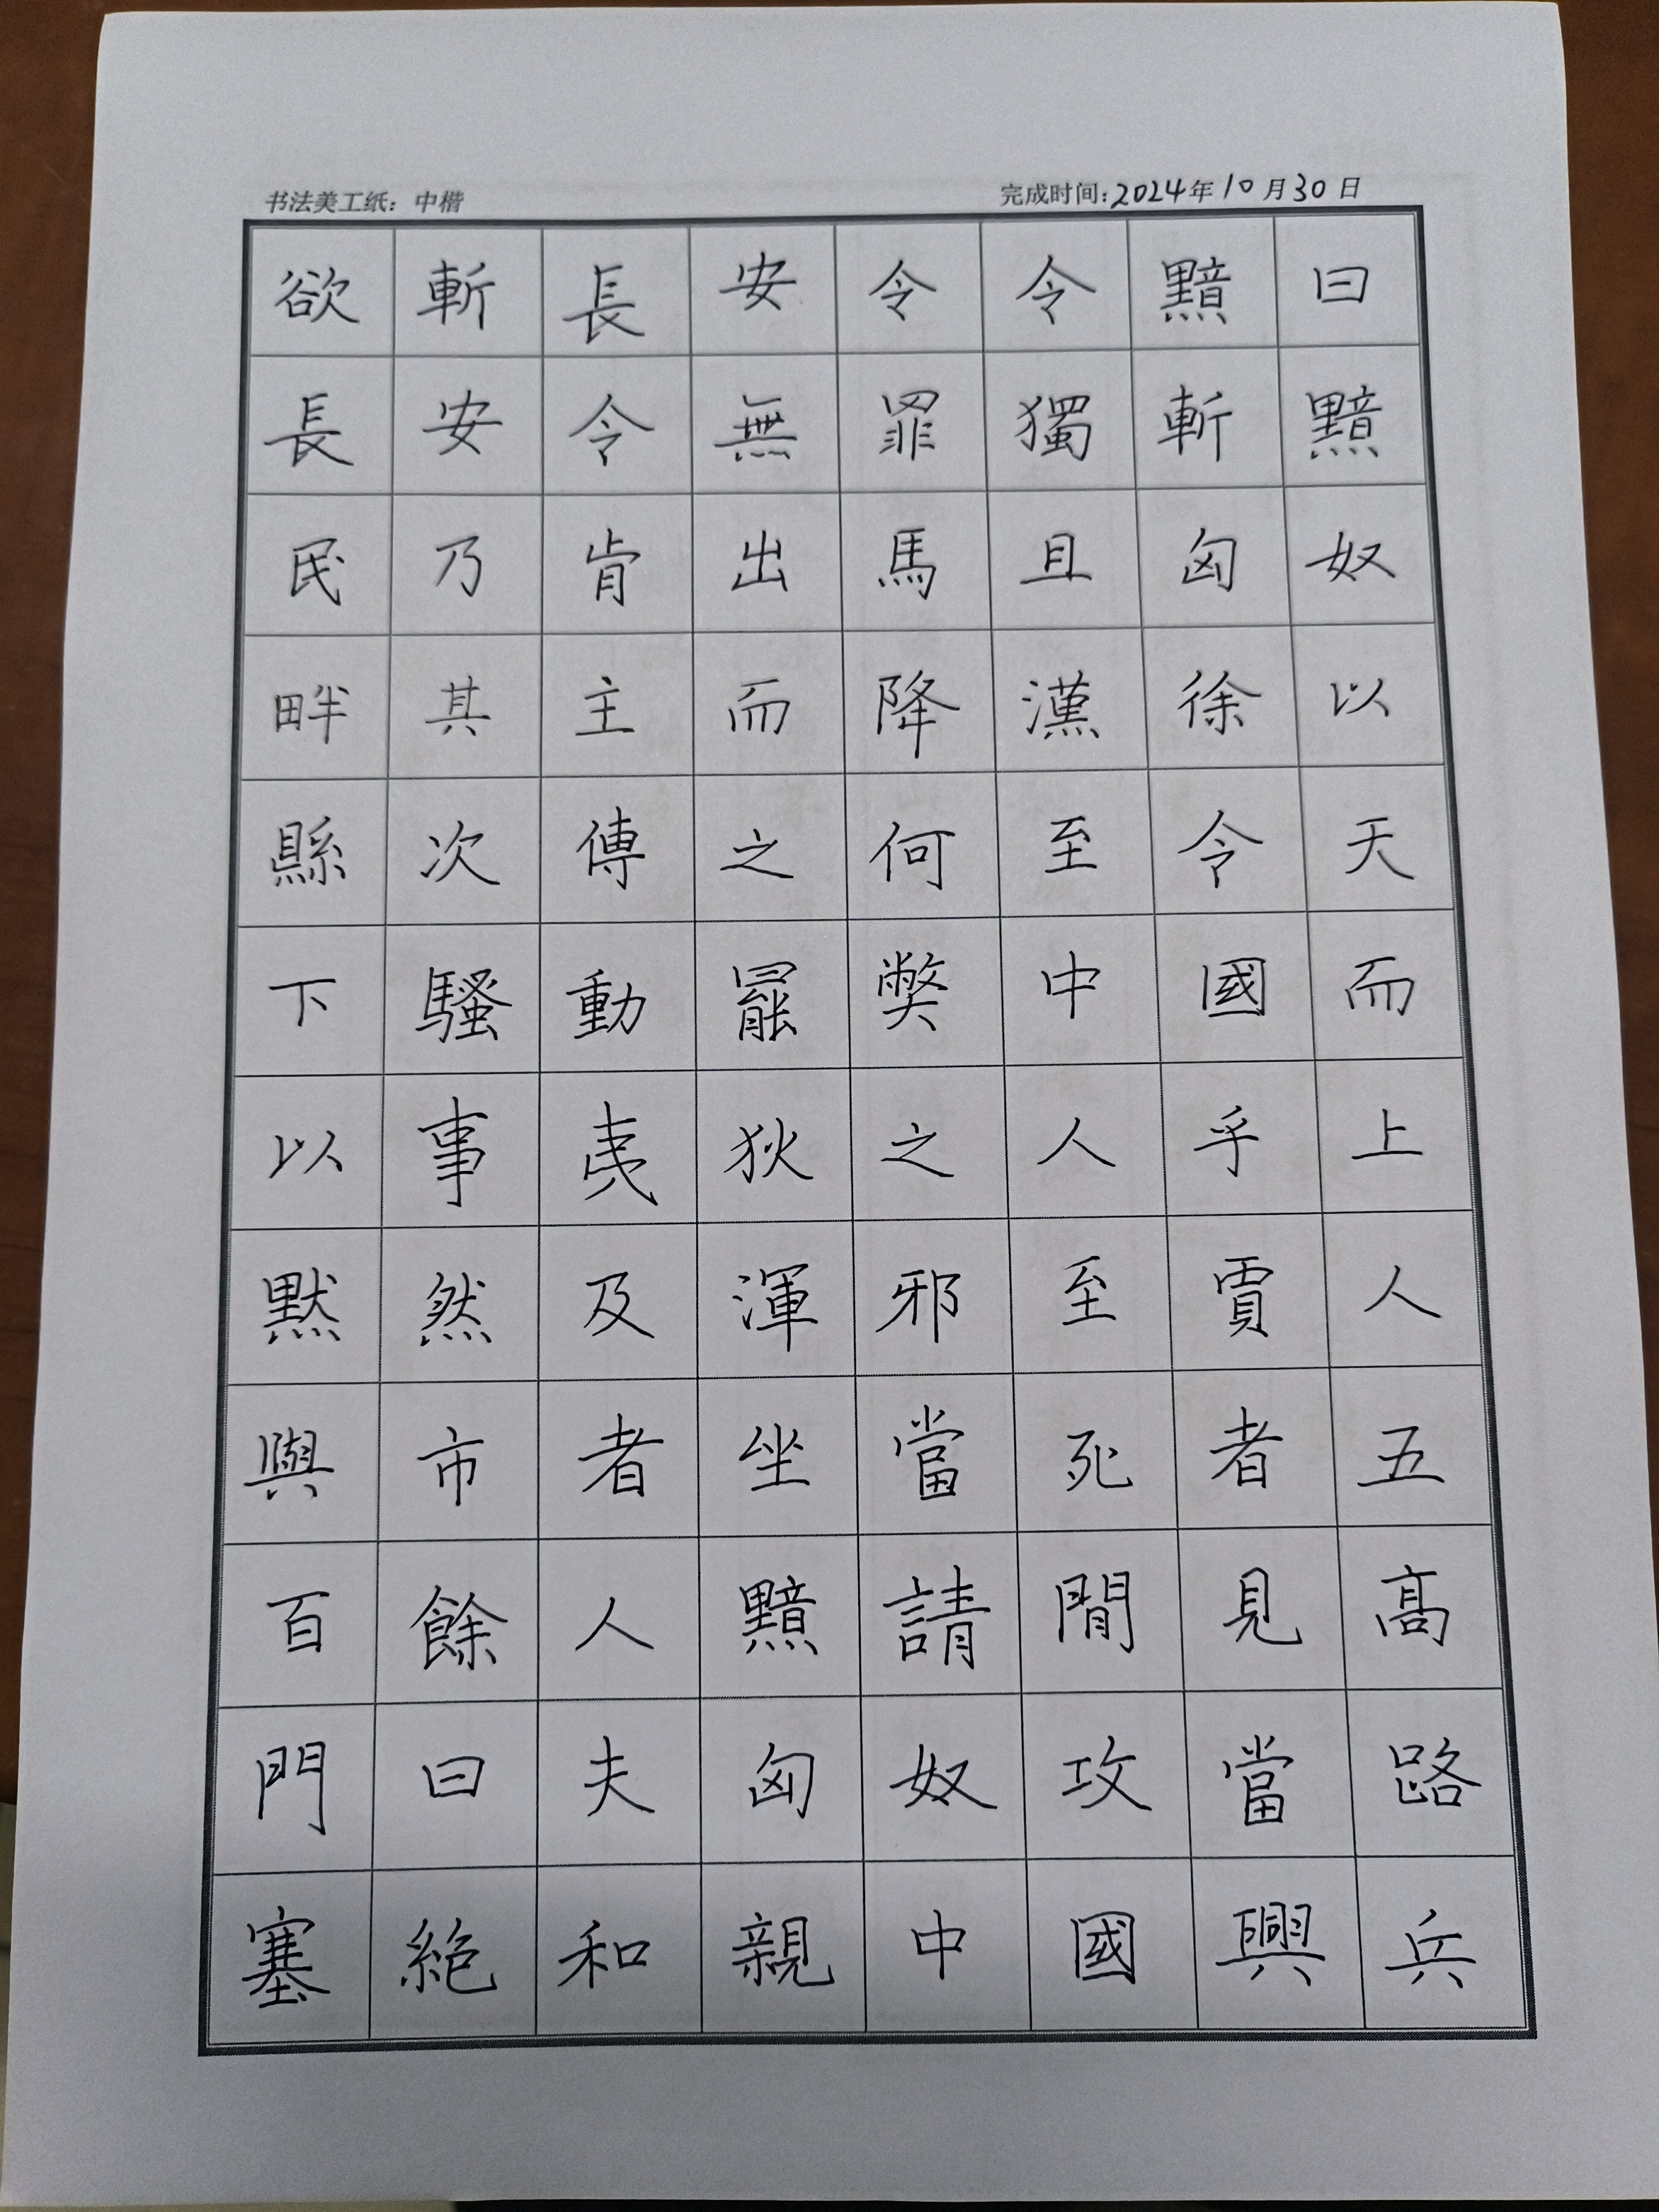 书法美工纸：中楷
完成时间：2024年10月30日
欲斬長安令令黯曰
長安令無罪獨斬黯
民乃肯出馬且匈奴
畔其主而降漢徐以
縣次傳之何至令天
下騷動罷獘中國而
以事夷狄之人乎上
默然及渾邪至賈人
與市者坐當死者五
百餘人黯請閒見高
門曰夫匈奴攻當路
塞絕和親中國興兵